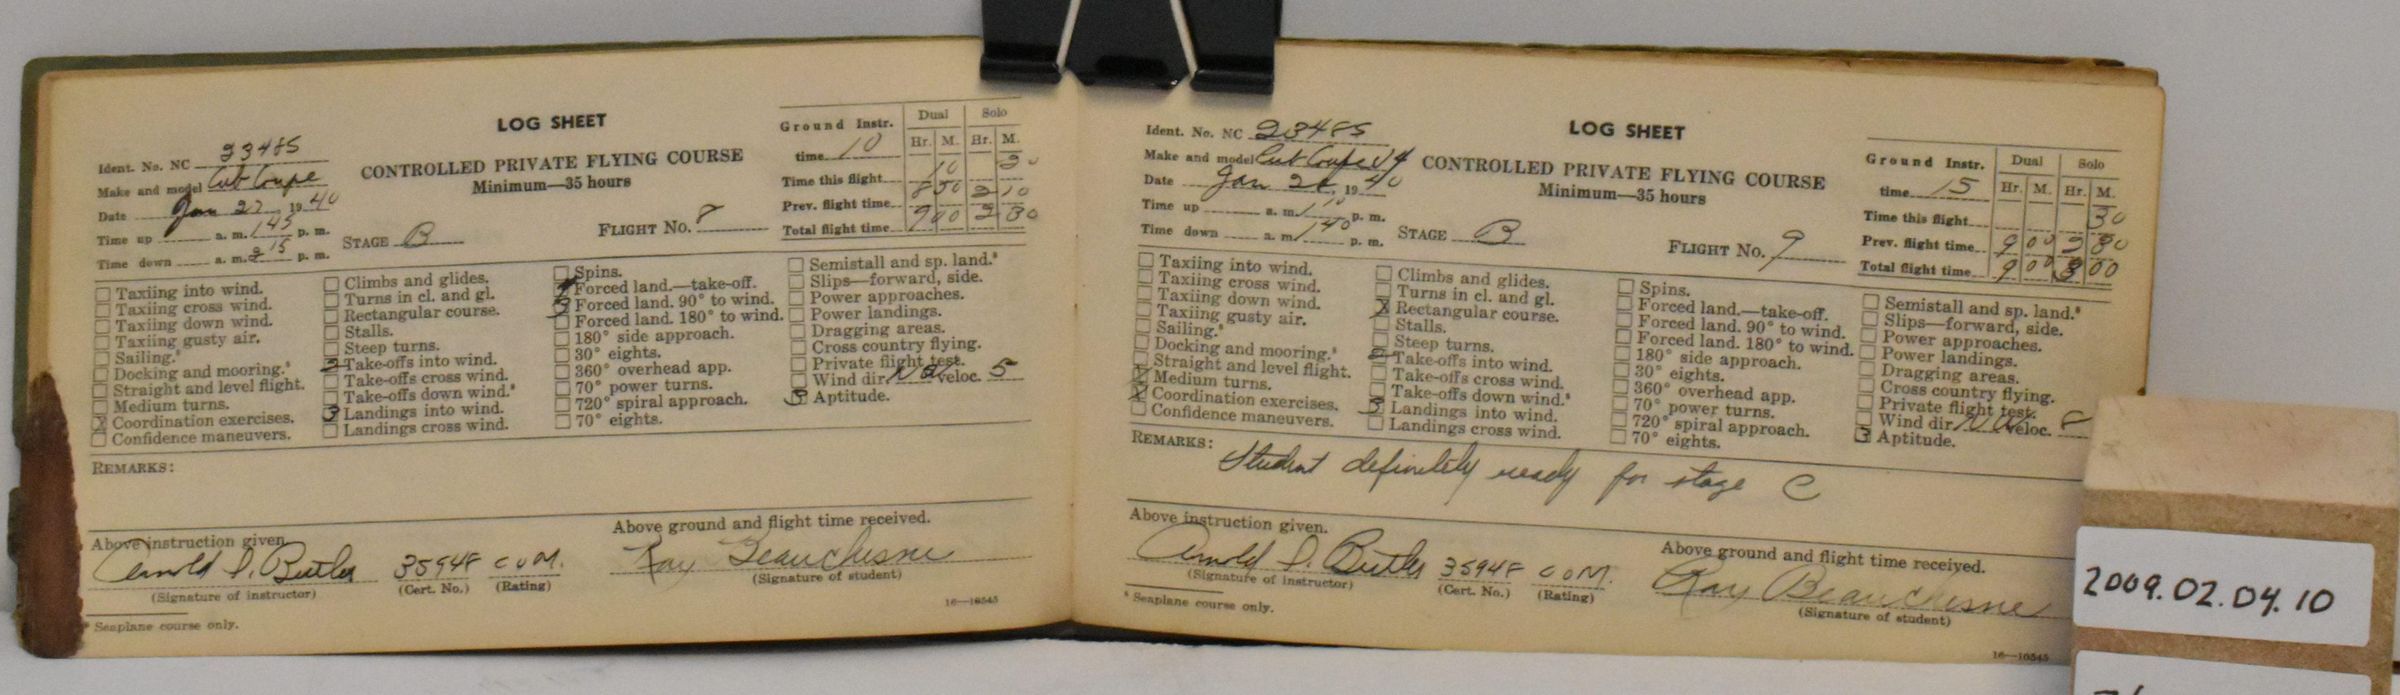 LOG SHEET
CONTROLLED PRIVATE FLYING COURSE
Minimum—35 hours
Ident. No. NC 23485
Make and model Cub Coupe
Date Jan 27, 1940
Time up a. m. 1 45 p. m.
Time down a. m. 2 15 p. m.
STAGE B
FLIGHT No. 8
Ground Instr. time 10
Dual Solo
Hr. M. Hr. M.
Time this flight 10 20
Prev. flight time 8 50 2 10
Total flight time 9 00 2 30
Taxiing into wind.
Taxiing cross wind.
Taxiing down wind.
Taxiing gusty air.
Sailing.*
Docking and mooring.*
Straight and level flight.
Medium turns.
X Coordination exercises.
Confidence maneuvers.
Climbs and glides.
Turns in cl. and gl.
Rectangular course.
Stalls.
Steep turns.
3 Take-offs into wind.
Take-offs cross wind.
Take-offs down wind.*
3 Landings into wind.
Landings cross wind.
Spins.
Forced land.—take-off.
3 Forced land. 90° to wind.
Forced land. 180° to wind.
180° side approach.
30° eights.
360° overhead app.
70° power turns.
720° spiral approach.
70° eights.
Semistall and sp. land.*
Slips—forward, side.
Power approaches.
Power landings.
Dragging areas.
Cross country flying.
Private flight test.
Wind dir. veloc. 5
3 Aptitude.
REMARKS:
Above instruction given.
Arnold D. Butler 35948 COM.
(Signature of instructor) (Cert. No.) (Rating)
Above ground and flight time received.
Ray Beauchesne
(Signature of student)
* Seaplane course only.
16—16545
LOG SHEET
CONTROLLED PRIVATE FLYING COURSE
Minimum—35 hours
Ident. No. NC 23485
Make and model Cub Coupe J4
Date Jan 28, 1940
Time up a. m. 1 10 p. m.
Time down a. m. 1 40 p. m.
STAGE B
FLIGHT No. 9
Ground Instr. time 15
Dual Solo
Hr. M. Hr. M.
Time this flight 30
Prev. flight time 9 00 2 30
Total flight time 9 00 3 00
Taxiing into wind.
Taxiing cross wind.
Taxiing down wind.
Taxiing gusty air.
Sailing.*
Docking and mooring.*
Straight and level flight.
X Medium turns.
X Coordination exercises.
Confidence maneuvers.
Climbs and glides.
Turns in cl. and gl.
X Rectangular course.
Stalls.
Steep turns.
2 Take-offs into wind.
Take-offs cross wind.
Take-offs down wind.*
3 Landings into wind.
Landings cross wind.
Spins.
Forced land.—take-off.
Forced land. 90° to wind.
Forced land. 180° to wind.
180° side approach.
30° eights.
360° overhead app.
70° power turns.
720° spiral approach.
70° eights.
Semistall and sp. land.*
Slips—forward, side.
Power approaches.
Power landings.
Dragging areas.
Cross country flying.
Private flight test.
Wind dir. veloc. 8
3 Aptitude.
REMARKS: Student definitely ready for stage C
Above instruction given.
Arnold D. Butler 35948 COM.
(Signature of instructor) (Cert. No.) (Rating)
Above ground and flight time received.
Ray Beauchesne
(Signature of student)
* Seaplane course only.
16—16545
2009.02.04.10